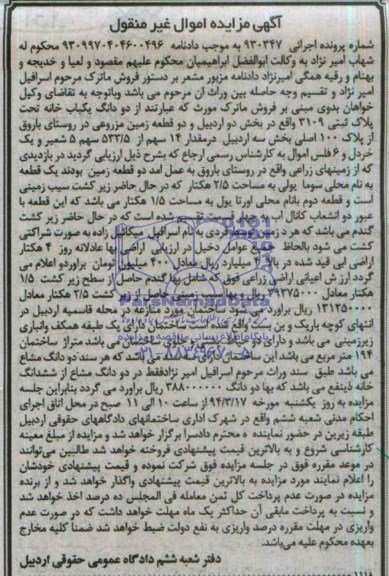 آگهی مزایده اموال غیر منقول
شماره پرونده اجرائی ۹۳۰۳۴۷ به موجب دادنامه ۹۳۰۹۹۷۰۴۰۴۶۰۰۴۹۶ محکوم له
شهاب امیر نژاد به وکالت ابوالفضل ابراهیمیان محکوم علیهم مقصود و لعیا و خدیجه و
بهنام و رقیه همگی امیرنژاد دادنامه مزبور مشعر بر دستور فروش ماترک مرحوم اسرافیل
امیر نژاد و تقسیم وجه حاصله بین وراث آن مرحوم می باشد وباتوجه به تقاضای وکیل
خواهان بدوی مبنی بر فروش ماترک مورث که عبارتند از دو دانگ یکباب خانه تحت
پلاک ثبتی ۳۱۰۹ واقع در بخش دو اردبیل و دو قطعه زمین مزروعی در روستای باروق
از پلاک ۱۰۰ اصلی بخش سه اردبیل درمقدار ۱۴ سهم از ۵۳۳/۵ سهم ۵ شعیر و یک
خردل و ۶ فلس اموال به کارشناس رسمی ارجاع که بشرح ذیل ارزیابی گردید در بازدیدی
که از زمینهای زراعی واقع در روستای باروق به عمل آمد دو قطعه زمین بودند یک قطعه
به نام محلی سوما یولی به مساحت ۲/۵ هکتار که در حال حاضر زیر کشت سیب زمینی
است و قطعه دوم بانام محلی اورتا یول به مساحت ۱/۵ هکتار می باشد که این قطعه با
عبور دو انشعاب کانال آب به چهار قسمت تقسیم شده است که در حال حاضر زیر کشت
گندم می باشد که هر دو زمین توسط فردی به نام اسرافیل میکائیل زاده به صورت شراکتی
کشت می شود بالحاظ جمیع عوامل دخیل در ارزیابی اراضی بها عادلانه روز ۴ هکتار
اراضی آبی قید شده در بالا ۴ میلیارد ریال معادل ۴۰۰ میلیون تومان برآوردو اعلام می
گردد ارزش اعیانی اراضی زراعی فوق که شامل بها گندم حاصل از سطح زیر کشت ۱/۵
هکتار معادل ۳۹۳۷۵۰۰۰ ریال و بها سیب زمینی حاصل از زیر کشت ۲/۵ هکتار معادل
ریال برآورد می شود ساختمان مورد منازعه در محله قاسمیه اردبیل در
انتهای کوچه باریک و بن بست واقع شده است ساختمان دارای یک طبقه همکف وانباری
زیرزمینی می باشد و دارای
۱۹۴ متر مربع می باشد این ساختمان دارای سند می باشد که هر سند دو دانگ مشاع
می باشد طبق سند وراث مرحوم اسرافیل امیر نژادفقط در دو دانگ مشاع از ششدانگ
خانه ذینفع می باشد که بها دو دانگ ۳۸۸۰۰۰۰۰۰ ریال برآورد می گردد بنابراین جلسه
مزایده به روز یکشنبه مورخه ۹۴/۳/۱۷ از ساعت ۱۰ الی ۱۱ صبح در محل اتاق اجرای
احکام مدنی شعبه ششم واقع در شهرک اداری ساختمانهای دادگاههای حقوقی اردبیل
طبقه زیرین در حضور نماینده ه محترم دادسرا برگزار خواهد شد و مزایده از مبلغ معینه
کارشناسی شروع و به بالاترین قیمت پیشنهادی فروخته خواهد شد طالبین می‌توانند
در موعد مقرره فوق در جلسه مزایده فوق شرکت نموده و قیمت پیشنهادی خودشان
را اعلام نمایند مورد مزایده به بالاترین قیمت پیشنهادی واگذار خواهد شد و از برنده
مزایده در صورت عدم پرداخت کل ثمن معامله فی المجلس ده درصد اخذ خواهد شد
و نسبت به پرداخت مابقی آن حداکثر یک ماه مهلت خواهد داشت که در صورت عدم
واریزی در مهلت مقرره درصد واریزی به نفع دولت ضبط خواهد شد ضمناً کلیه مخارج
بعهده محکوم علیه می‌باشد.
دفتر شعبه ششم دادگاه عمومی حقوقی اردبیل